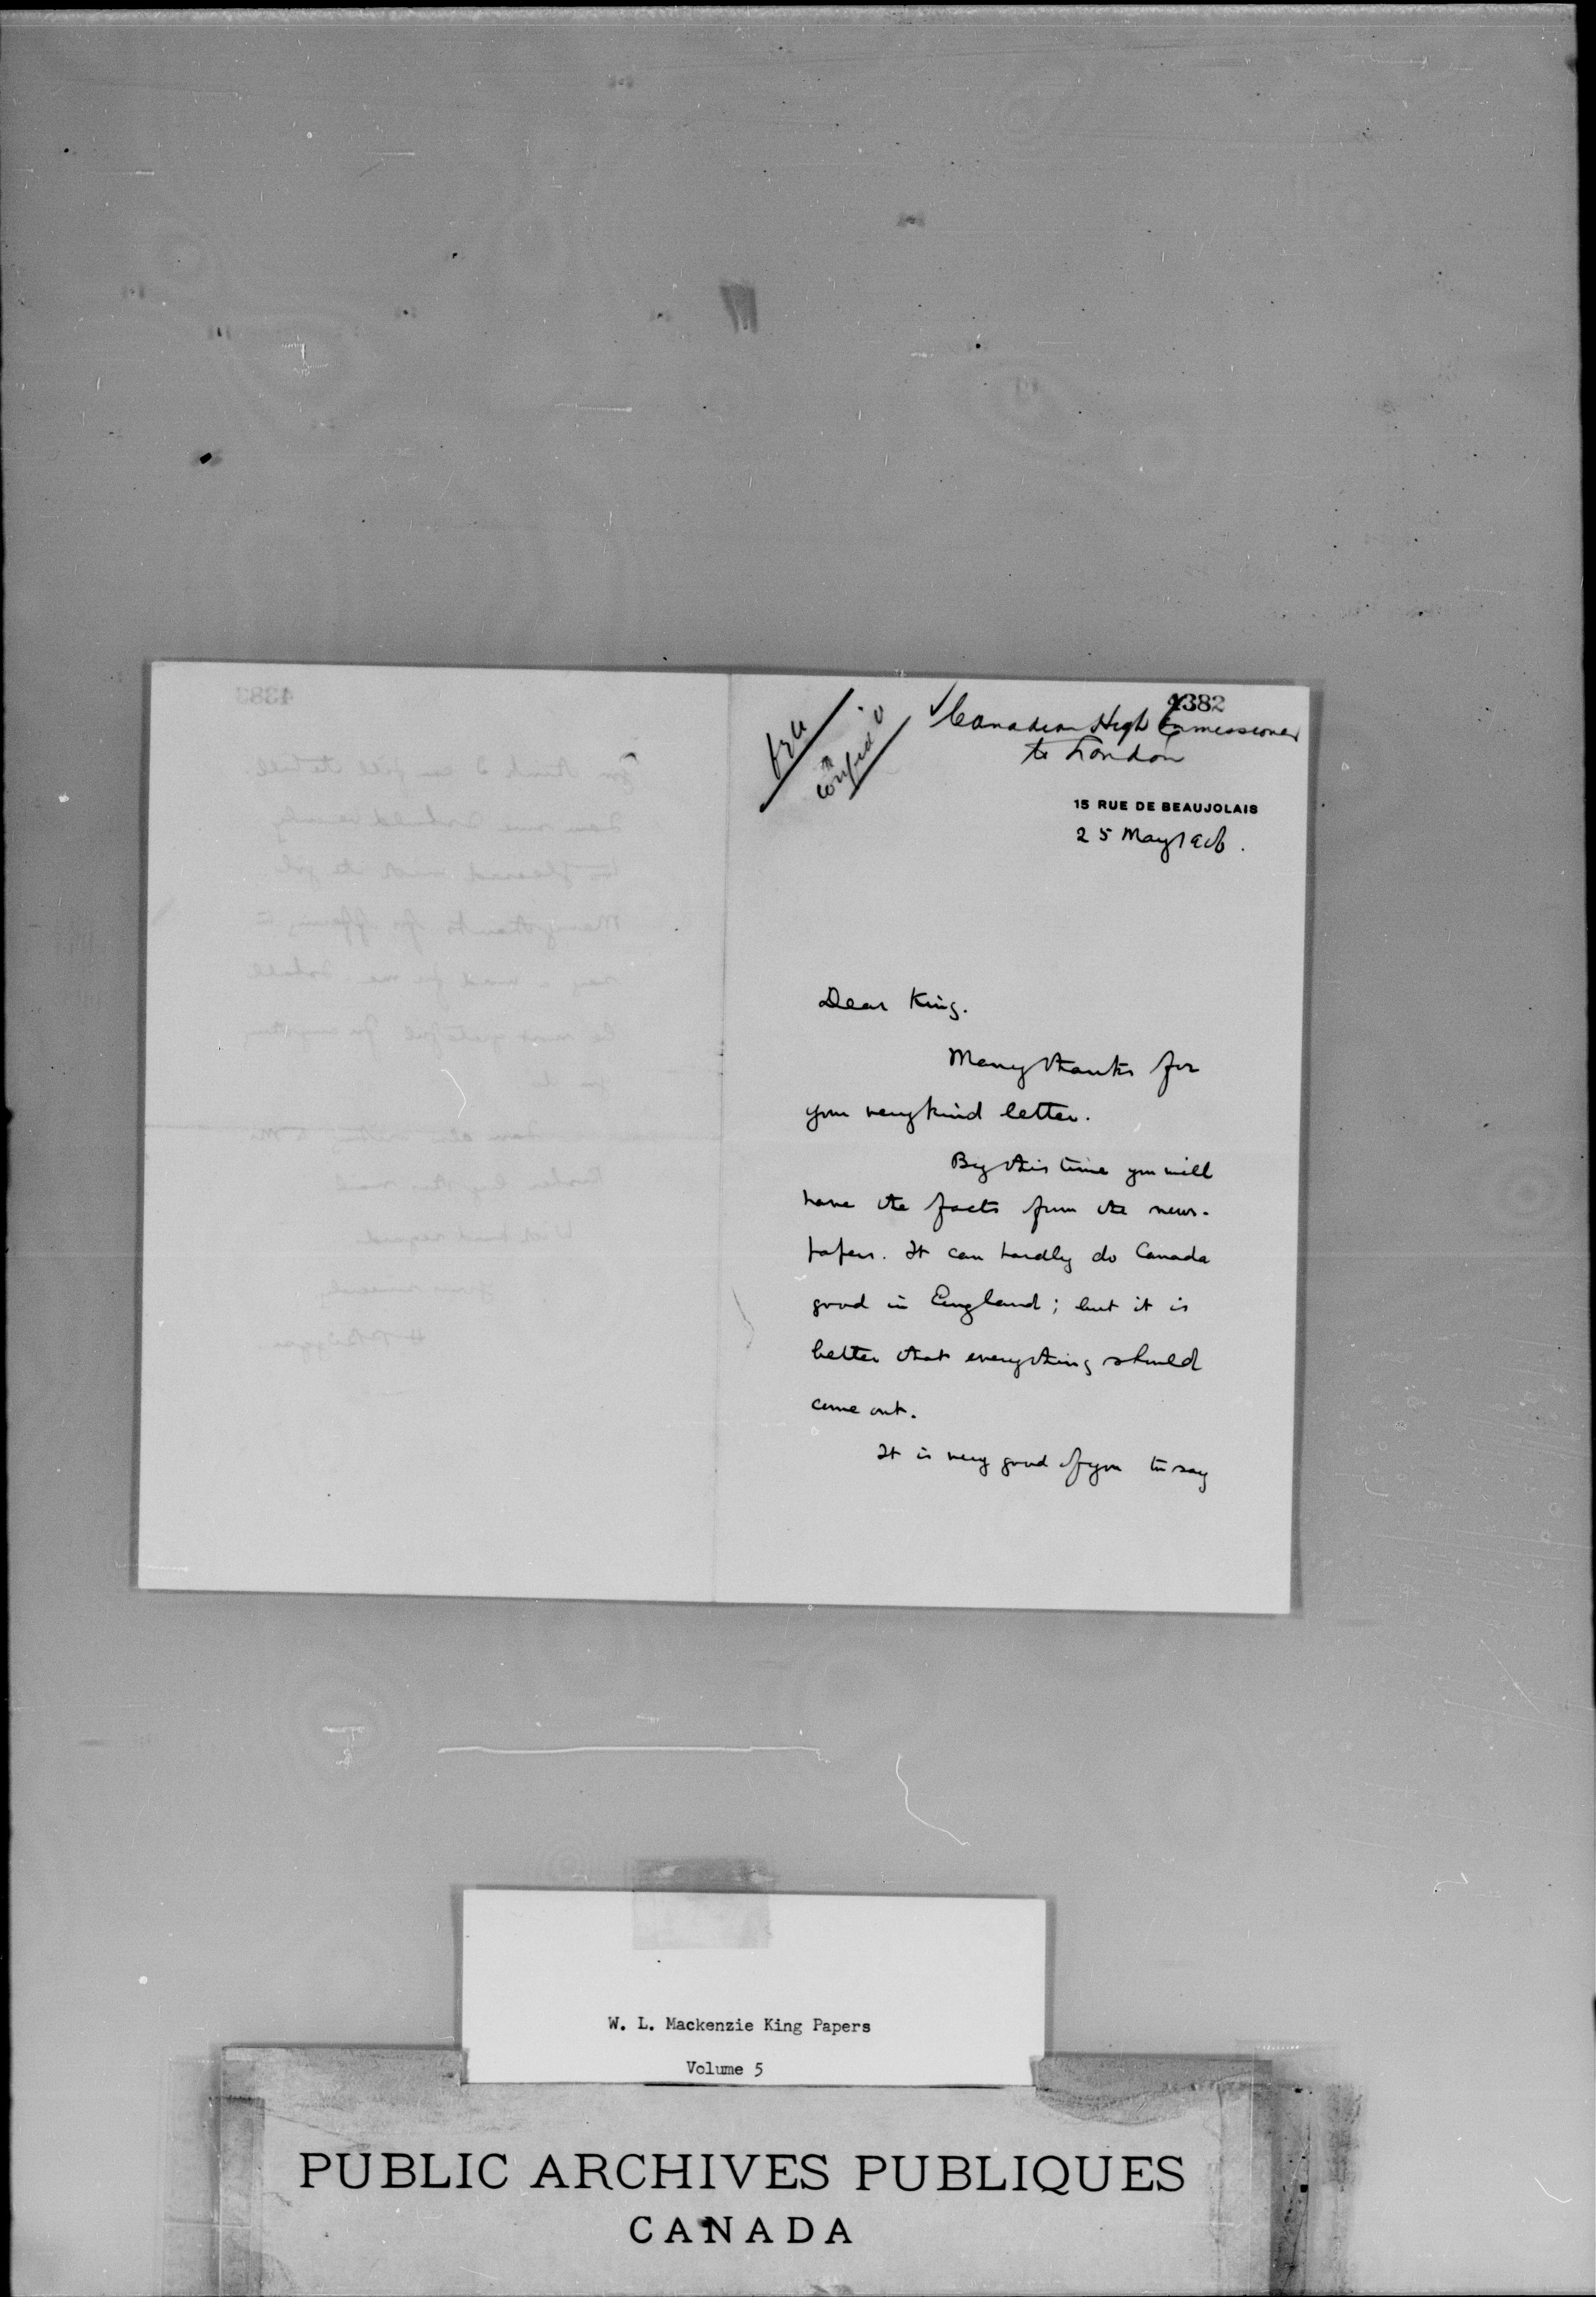 4382
✓ Canadian High Commissioner
to London
15 RUE DE BEAUJOLAIS
25 May 1906.
Dear King.
Many thanks for
your very kind letter.
By this time you will
have the facts from the news-
papers. It can hardly do Canada
good in England; but it is
better that everything should
come out.
It is very good of you to say
W. L. Mackenzie King Papers
Volume 5
PUBLIC ARCHIVES PUBLIQUES
CANADA